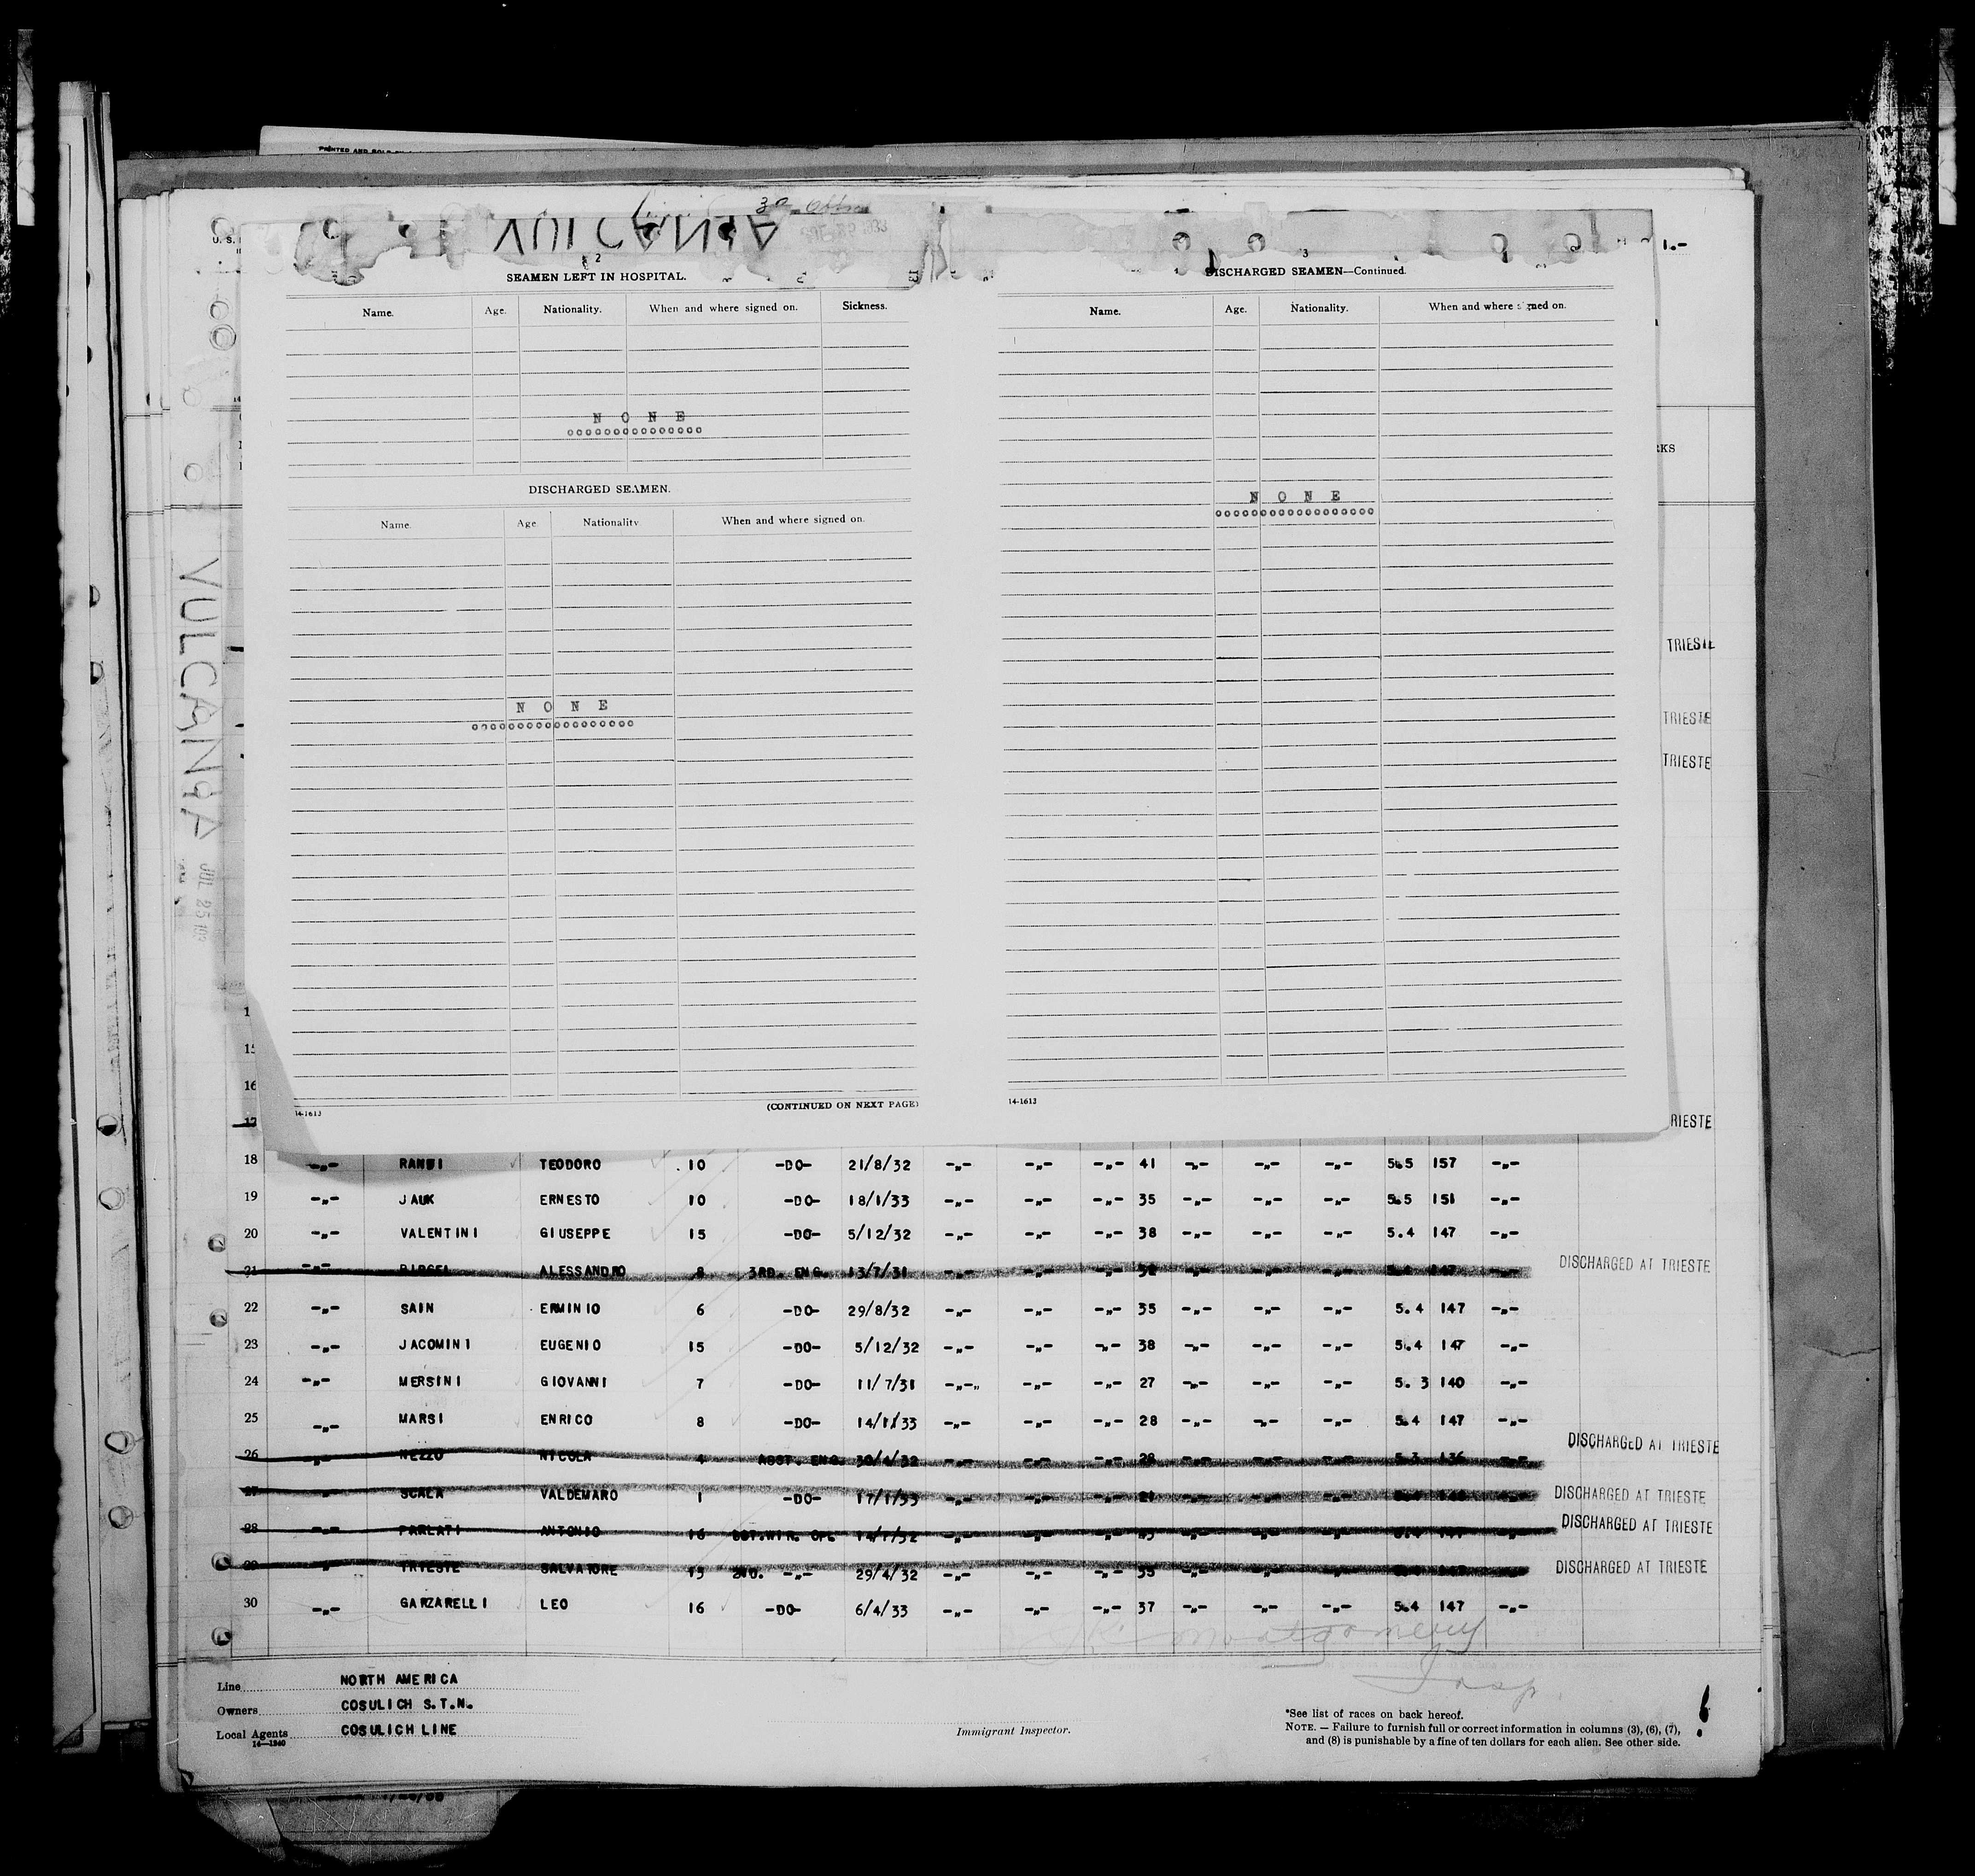 PRINTED AND SOLD
U. S.
VULCANIA
1.-
2
3
SEAMEN LEFT IN HOSPITAL.
Name. Age. Nationality. When and where signed on. Sickness.
N O N E
DISCHARGED SEAMEN.
Name. Age Nationality When and where signed on.
N O N E
(CONTINUED ON NEXT PAGE)
14-1613
DISCHARGED SEAMEN—Continued.
Name. Age. Nationality. When and where signed on.
N O N E
14-1613
RKS
VULCANIA
JUL 25 19
TRIESTE
TRIESTE
TRIESTE
16
17 RIESTE
18 -"- TEODORO 10 -DO- 21/8/32 -"- -"- -"- 41 -"- -"- -"- 5.5 157 -"-
19 -"- JAUK ERNESTO 10 -DO- 18/1/33 -"- -"- -"- 35 -"- -"- -"- 5.5 151 -"-
20 -"- VALENTINI GIUSEPPE 15 -DO- 5/12/32 -"- -"- -"- 38 -"- -"- -"- 5.4 147 -"-
21 -"- ALESSANDRO 8 3RD. ENG. 13/7/31 -"- -"- -"- -"- -"- -"- DISCHARGED AT TRIESTE
22 -"- SAIN ERMINIO 6 -DO- 29/8/32 -"- -"- -"- 35 -"- -"- -"- 5.4 147 -"-
23 -"- JACOMINI EUGENIO 15 -DO- 5/12/32 -"- -"- -"- 38 -"- -"- -"- 5.4 147 -"-
24 -"- MERSINI GIOVANNI 7 -DO- 11/7/31 -"-" -"- -"- 27 -"- -"- -"- 5.3 140 -"-
25 -"- MARSI ENRICO 8 -DO- 14/1/33 -"- -"- -"- 28 -"- -"- -"- 5.4 147 -"-
26 -"- NEZZO NICOLA 4 ASST. ENG. 30/4/32 -"- -"- -"- 28 -"- -"- -"- 5.3 136 -"- DISCHARGED AT TRIESTE
27 -"- SCALA VALDEMARO 1 -DO- 17/1/33 -"- -"- -"- -"- -"- -"- DISCHARGED AT TRIESTE
28 -"- PARLATI ANTONIO 16 -"- -"- -"- -"- -"- -"- DISCHARGED AT TRIESTE
29 -"- TRIESTE SALVATORE 15 2ND. -"- 29/4/32 -"- -"- -"- 35 -"- -"- -"- DISCHARGED AT TRIESTE
30 -"- GARZARELLI LEO 16 -DO- 6/4/33 -"- -"- -"- 37 -"- -"- -"- 5.4 147 -"-
Montgomery
Insp.
Line NORTH AMERICA
Owners COSULICH S.T.N.
Local Agents COSULICH LINE
14—1240
Immigrant Inspector.
*See list of races on back hereof.
NOTE. — Failure to furnish full or correct information in columns (3), (6), (7),
and (8) is punishable by a fine of ten dollars for each alien. See other side.